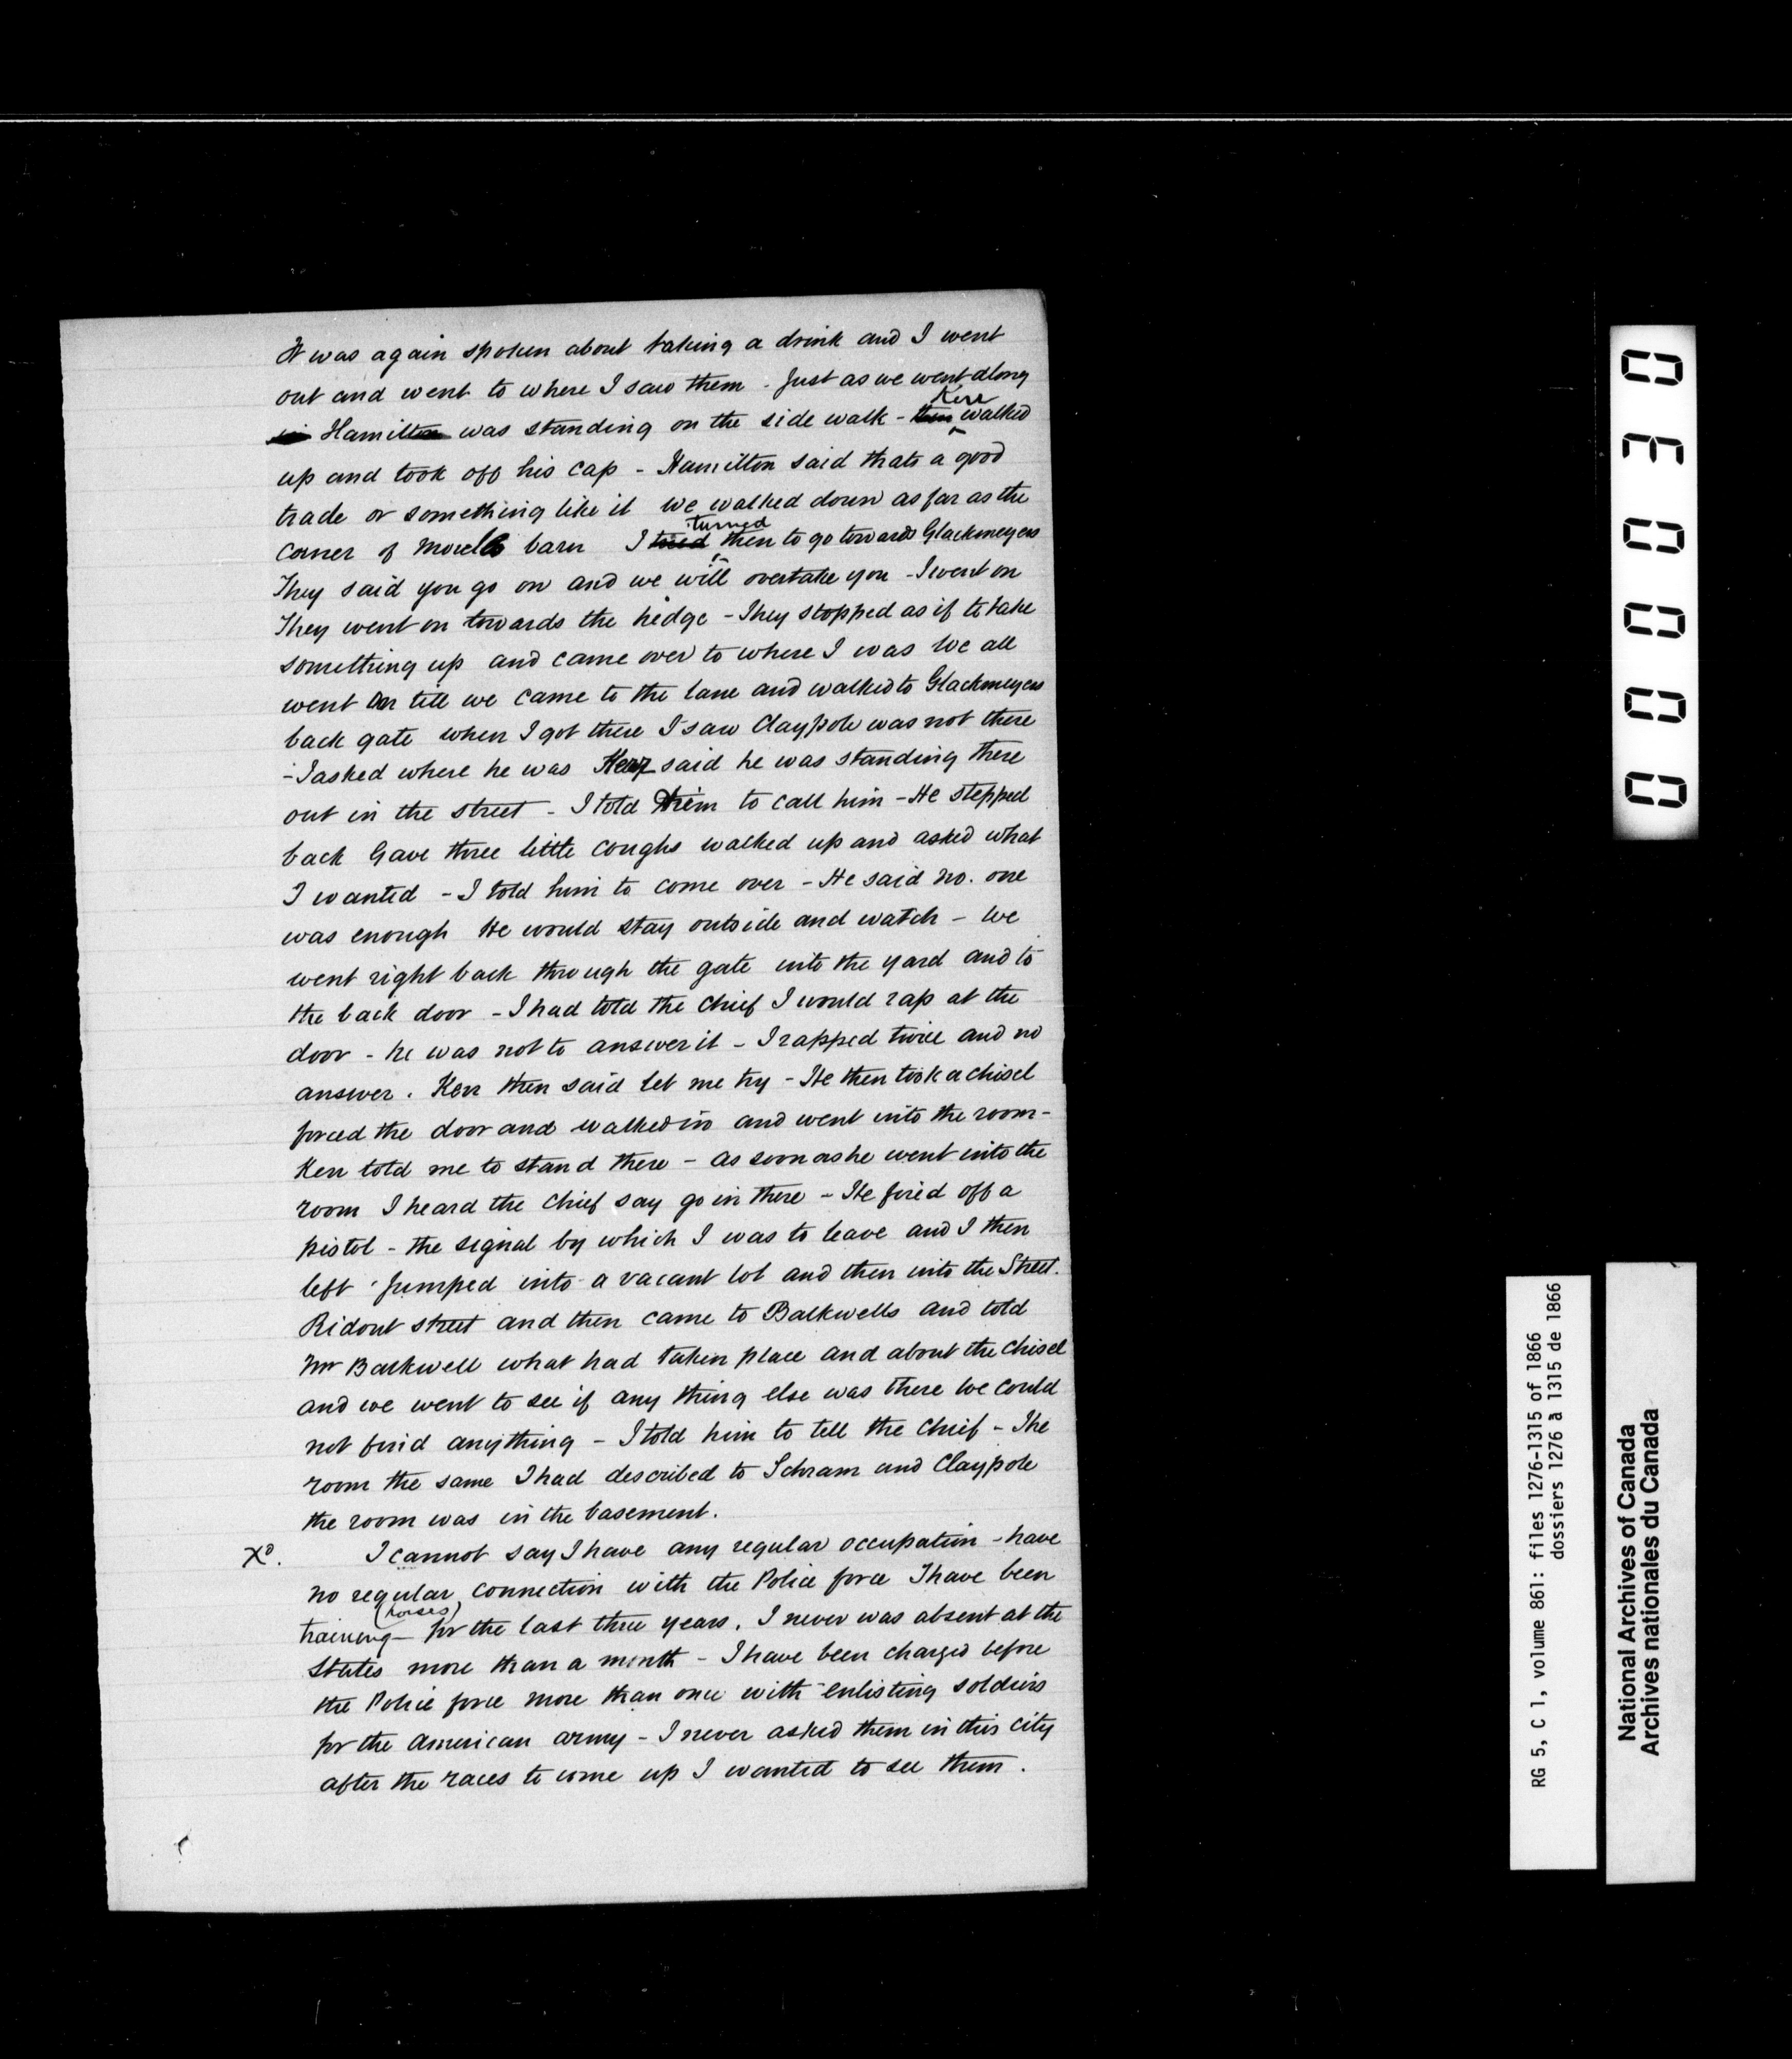 It was again spoken about taking a drink and I went
out and went to where I saw them - Just as we went along
Hamilton was standing on the side walk - then Kerr walked
up and took off his cap - Hamilton said thats a good
trade or something like it we walked down as far as the
corner of barn I tried turned then to go towards Glackmeyers
They said you go on and we will overtake you - I went on
They went on towards the hedge - They stopped as if to take
something up and came over to where I was We all
went on till we came to the lane and walked to Glackmeyers
back gate when I got there I saw Claypole was not there
- I asked where he was Kerr said he was standing there
out in the street - I told him to call him - He stepped
back Gave three little coughs walked up and asked what
I wanted - I told him to come over - He said no. one
was enough He would stay outside and watch - We
went right back through the gate into the yard and to
the back door - I had told the Chief I would rap at the
door - he was not to answer it - I rapped twice and no
answer. Kerr then said let me try - He then took a chisel
forced the door and walked in and went into the room -
Kerr told me to stand there - as soon as he went into the
room I heard the Chief say go in there - He fired off a
pistol - the signal by which I was to leave and I then
left Jumped into a vacant lot and then into the Street.
Ridout street and then came to Balkwells and told
Mr Balkwell what had taken place and about the chisel
and we went to see if any thing else was there We could
not find anything - I told him to tell the Chief - The
room the same I had described to Schram and Claypole
the room was in the basement.
XD. I cannot say I have any regular occupation - have
no regular connection with the Police force I have been
training (horses) for the last three years. I never was absent at the
States more than a month - I have been charged before
the Police force more than once with enlisting soldiers
for the American army - I never asked them in this city
after the races to come up I wanted to see them.
000030
RG 5, C 1, volume 861: files 1276-1315 of 1866
dossiers 1276 à 1315 de 1866
National Archives of Canada
Archives nationales du Canada